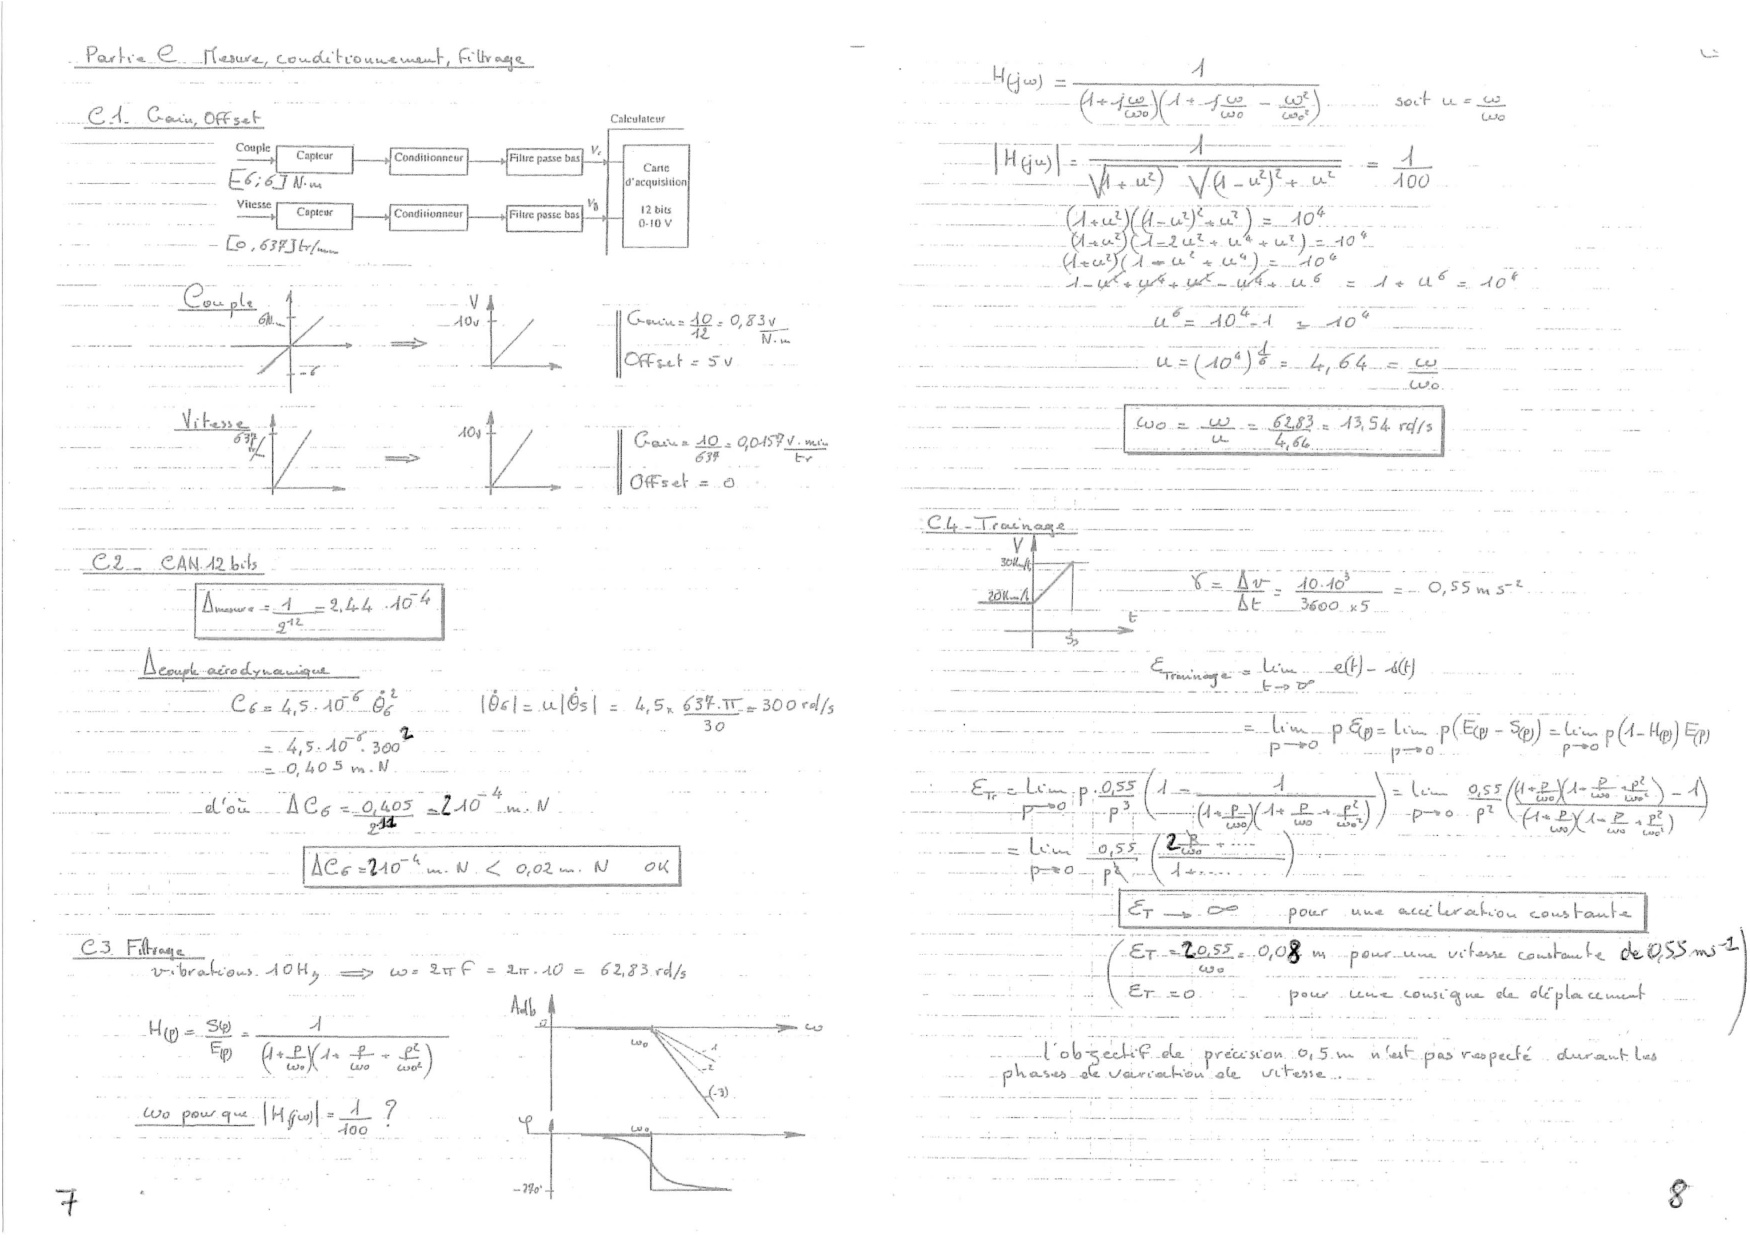 Partie C Mesure, conditionnement, Filtrage
C.1. Gain, Offset
Calculateur
Couple
Capteur
Conditionneur
Filtre passe bas
Vc
[-6;6] N.m
Carte d'acquisition
12 bits
0-10 V
Vitesse
Capteur
Conditionneur
Filtre passe bas
[0,637] tr/min
Couple
-6
V
10v
Gain = 10/12 = 0,83 v/N.m
Offset = 5v
Vitesse
637
10v
Gain = 10/637 = 0,0157 v.min/tr
Offset = 0
C2 - CAN 12 bits
Δmesure = 1/2^12 = 2,44 . 10^-4
Δcouple aérodynamique
C6 = 4,5 . 10^-6 θ̇6² |θ̇6| = u|θ̇5| = 4,5 x 637.π/30 = 300 rd/s
= 4,5 . 10^-6 . 300²
= 0,405 m.N
d'où ΔC6 = 0,405/2^11 = 2 10^-4 m.N
ΔC6 = 2 10^-4 m.N < 0,02 m.N OK
C3 Filtrage
vibrations 10Hz ⟹ ω = 2πF = 2π.10 = 62,83 rd/s
H(p) = S(p)/E(p) = 1/((1+p/ω0)(1+p/ω0+p²/ω0²))
ω0 pour que |H(jω)| = 1/100 ?
Adb
0
ω0
ω
-1
-2
(-3)
φ
ω0
-270°
7
H(jω) = 1/((1+jω/ω0)(1+jω/ω0 - ω²/ω0²)) soit u = ω/ω0
|H(ju)| = 1/(√(1+u²) √((1-u²)²+u²)) = 1/100
(1+u²)((1-u²)²+u²) = 10^4
(1+u²)(1-2u²+u^4+u²) = 10^4
(1+u²)(1-u²+u^4) = 10^4
1-u²+u^4+u²-u^4+u^6 = 1+u^6 = 10^4
u^6 = 10^4-1 ≈ 10^4
u = (10^4)^(1/6) = 4,64 = ω/ω0
ω0 = ω/u = 62,83/4,64 = 13,54 rd/s
C.4 - Trainage
V
30Km/h
20Km/h
5s
t
γ = Δv/Δt = 10.10³/(3600 x5) = 0,55 m s^-2
ε Trainage = lim t→∞ e(t) - s(t)
= lim p→0 p ε(p) = lim p→0 p(E(p) - S(p)) = lim p→0 p(1-H(p)) E(p)
εTr = lim p→0 p . 0,55/p³ (1 - 1/((1+p/ω0)(1+p/ω0+p²/ω0²))) = lim p→0 0,55/p² (((1+p/ω0)(1+p/ω0+p²/ω0²) - 1)/((1+p/ω0)(1+p/ω0+p²/ω0²)))
= lim p→0 0,55/p² ((2p/ω0 + ....)/(1+......))
εT → ∞ pour une accéleration constante
εT = 2 0,55/ω0 = 0,08 m pour une vitesse constante de 0,55 ms^-1
εT = 0 pour une consigne de déplacement
l'objectif de précision 0,5 m n'est pas respecté durant les
phases de variation de vitesse.
8